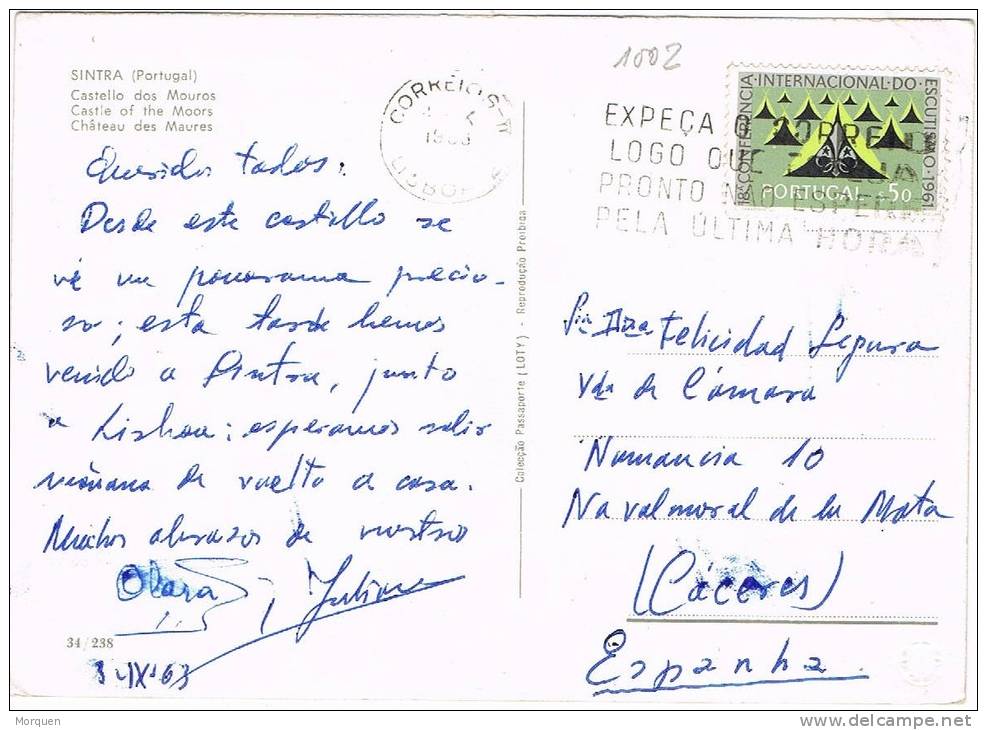 SINTRA (Portugal)
Castello dos Mouros
Castle of the Moors
Château des Maures
Queridos todos:
Desde este castillo se
vé un panorama precio-
so; esta tarde hemos
venido a Sintra, junto
a Lisboa: esperamos salir
mañana de vuelta a casa.
Muchos abrazos de vuestro
Clara
34/238
IX 63
Colecção Passaporte (LOTY) - Reprodução Proibida
1002
CORREIOS
LISBOA
EXPEÇA O CORREIO
LOGO QUE
PRONTO NÃO ESPERE
PELA ÚLTIMA HORA
18ª CONFERÊNCIA INTERNACIONAL DO ESCUTISMO 1961
PORTUGAL $50
Felicidad Segura
Vda de Cámara
Numancia 10
Navalmoral de la Mata
(Cáceres)
Espanha.
Morquen
delcampe.net